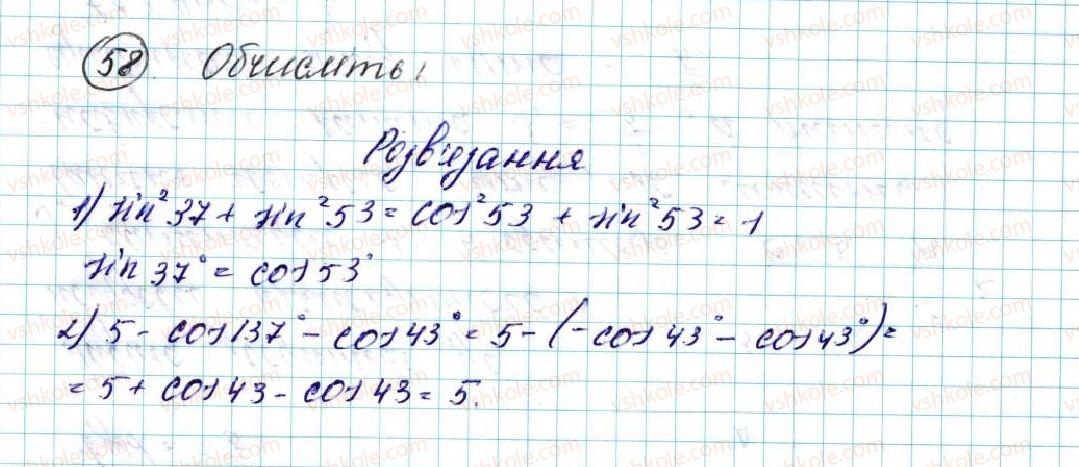 58 Обчисліть:
Розв'язання
1) sin²37 + sin²53 = cos²53 + sin²53 = 1
sin 37° = cos 53°
2) 5 - cos 137° - cos 43° = 5 - (-cos 43° - cos 43°) =
= 5 + cos 43 - cos 43 = 5.
vshkole.com